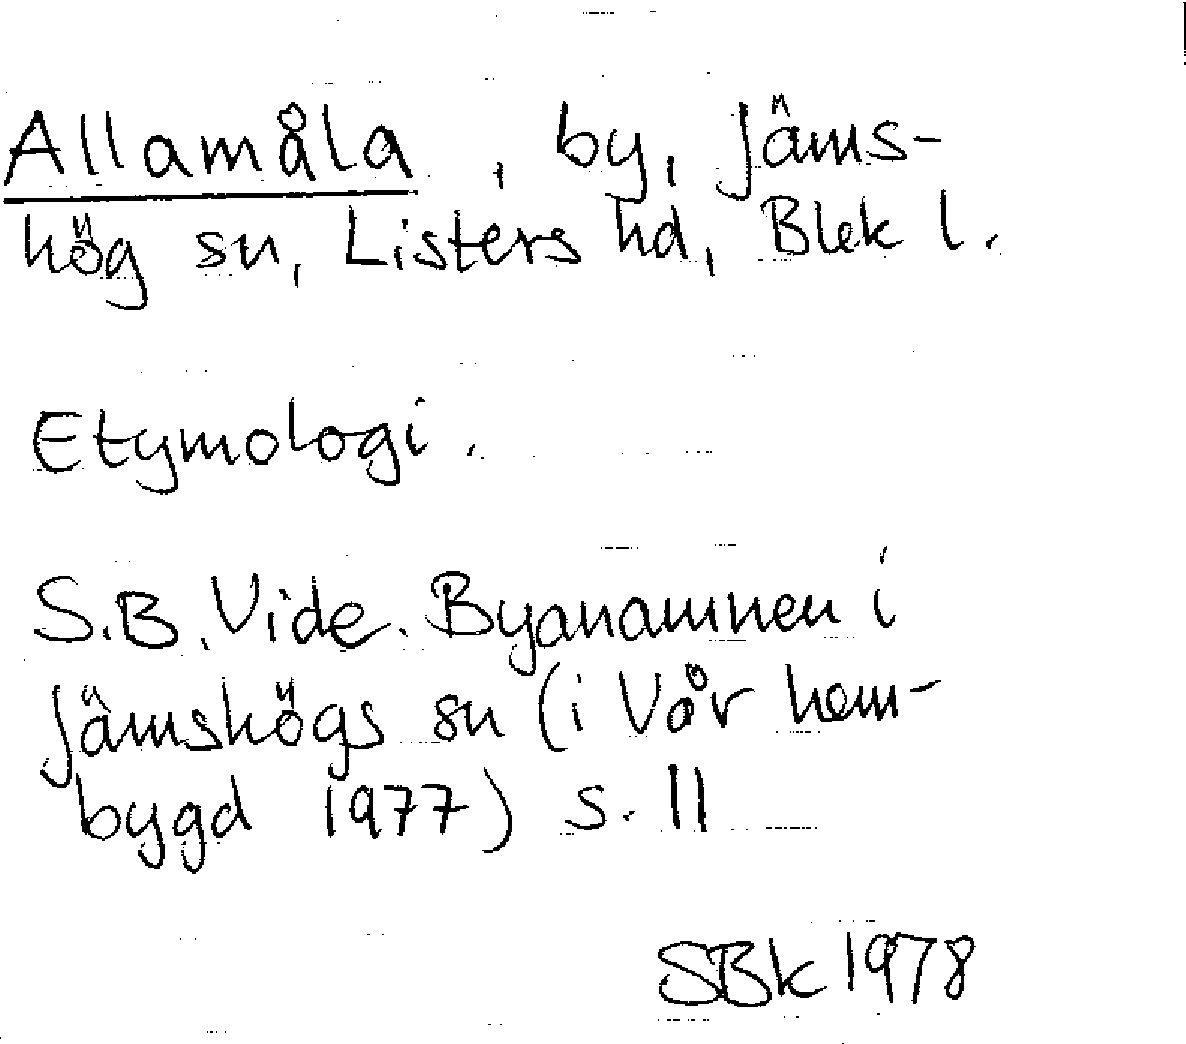 Allamåla, by, Jäms-
hög sn, Listers hd, Blek l.
Etymologi.
S.B. Vide. Byanamnen i
Jämshögs sn (i Vår hem-
bygd 1977) s. 11
SBk 1978